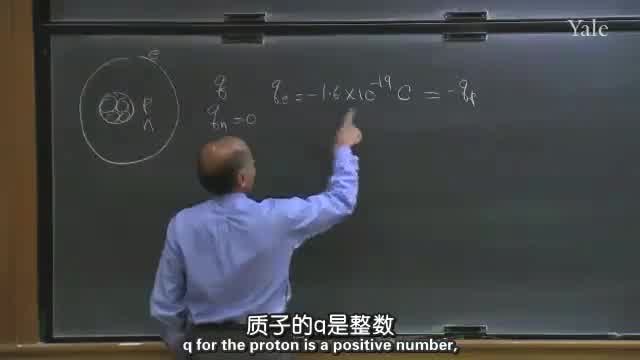 Yale
e
q
q_e = -1.6 × 10^-19 C = -q_p
P
n
q_n = 0
质子的q是整数
q for the proton is a positive number,